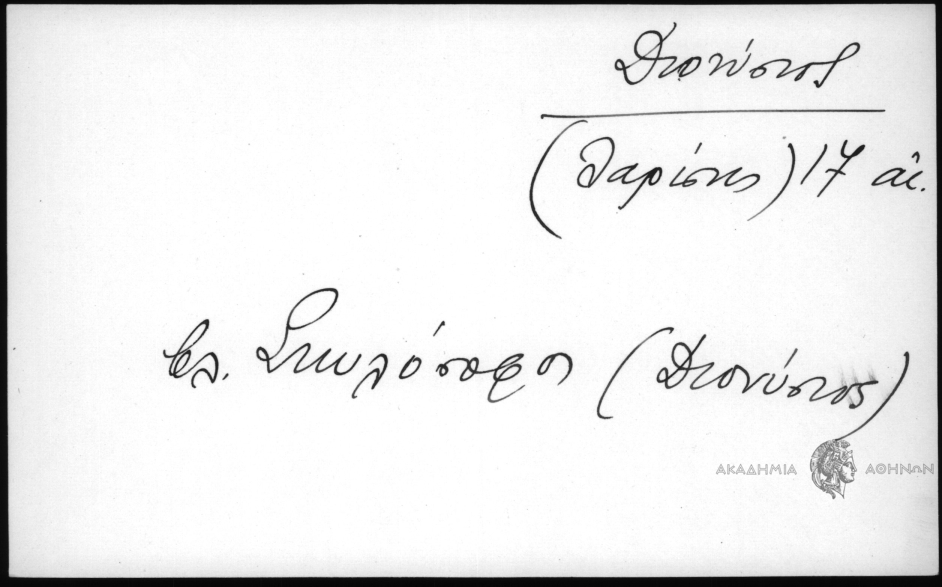 Διονύσιος
(Λαρίσης) 17 αἰ.
βλ. Σκυλόσοφος (Διονύσιος)
ΑΚΑΔΗΜΙΑ ΑΘΗΝΩΝ